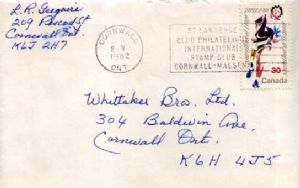 209
Cornwall Ont
K6J 2H7
CORNWALL
8 V
1982
ONT.
ST. LAWRENCE
CLUB PHILATELIQUE
INTERNATIONAL
STAMP CLUB
CORNWALL-MASSENA
30
Canada
Whittaker Bros. Ltd.
304 Baldwin Ave.
Cornwall
Ont.
K6H 4J5